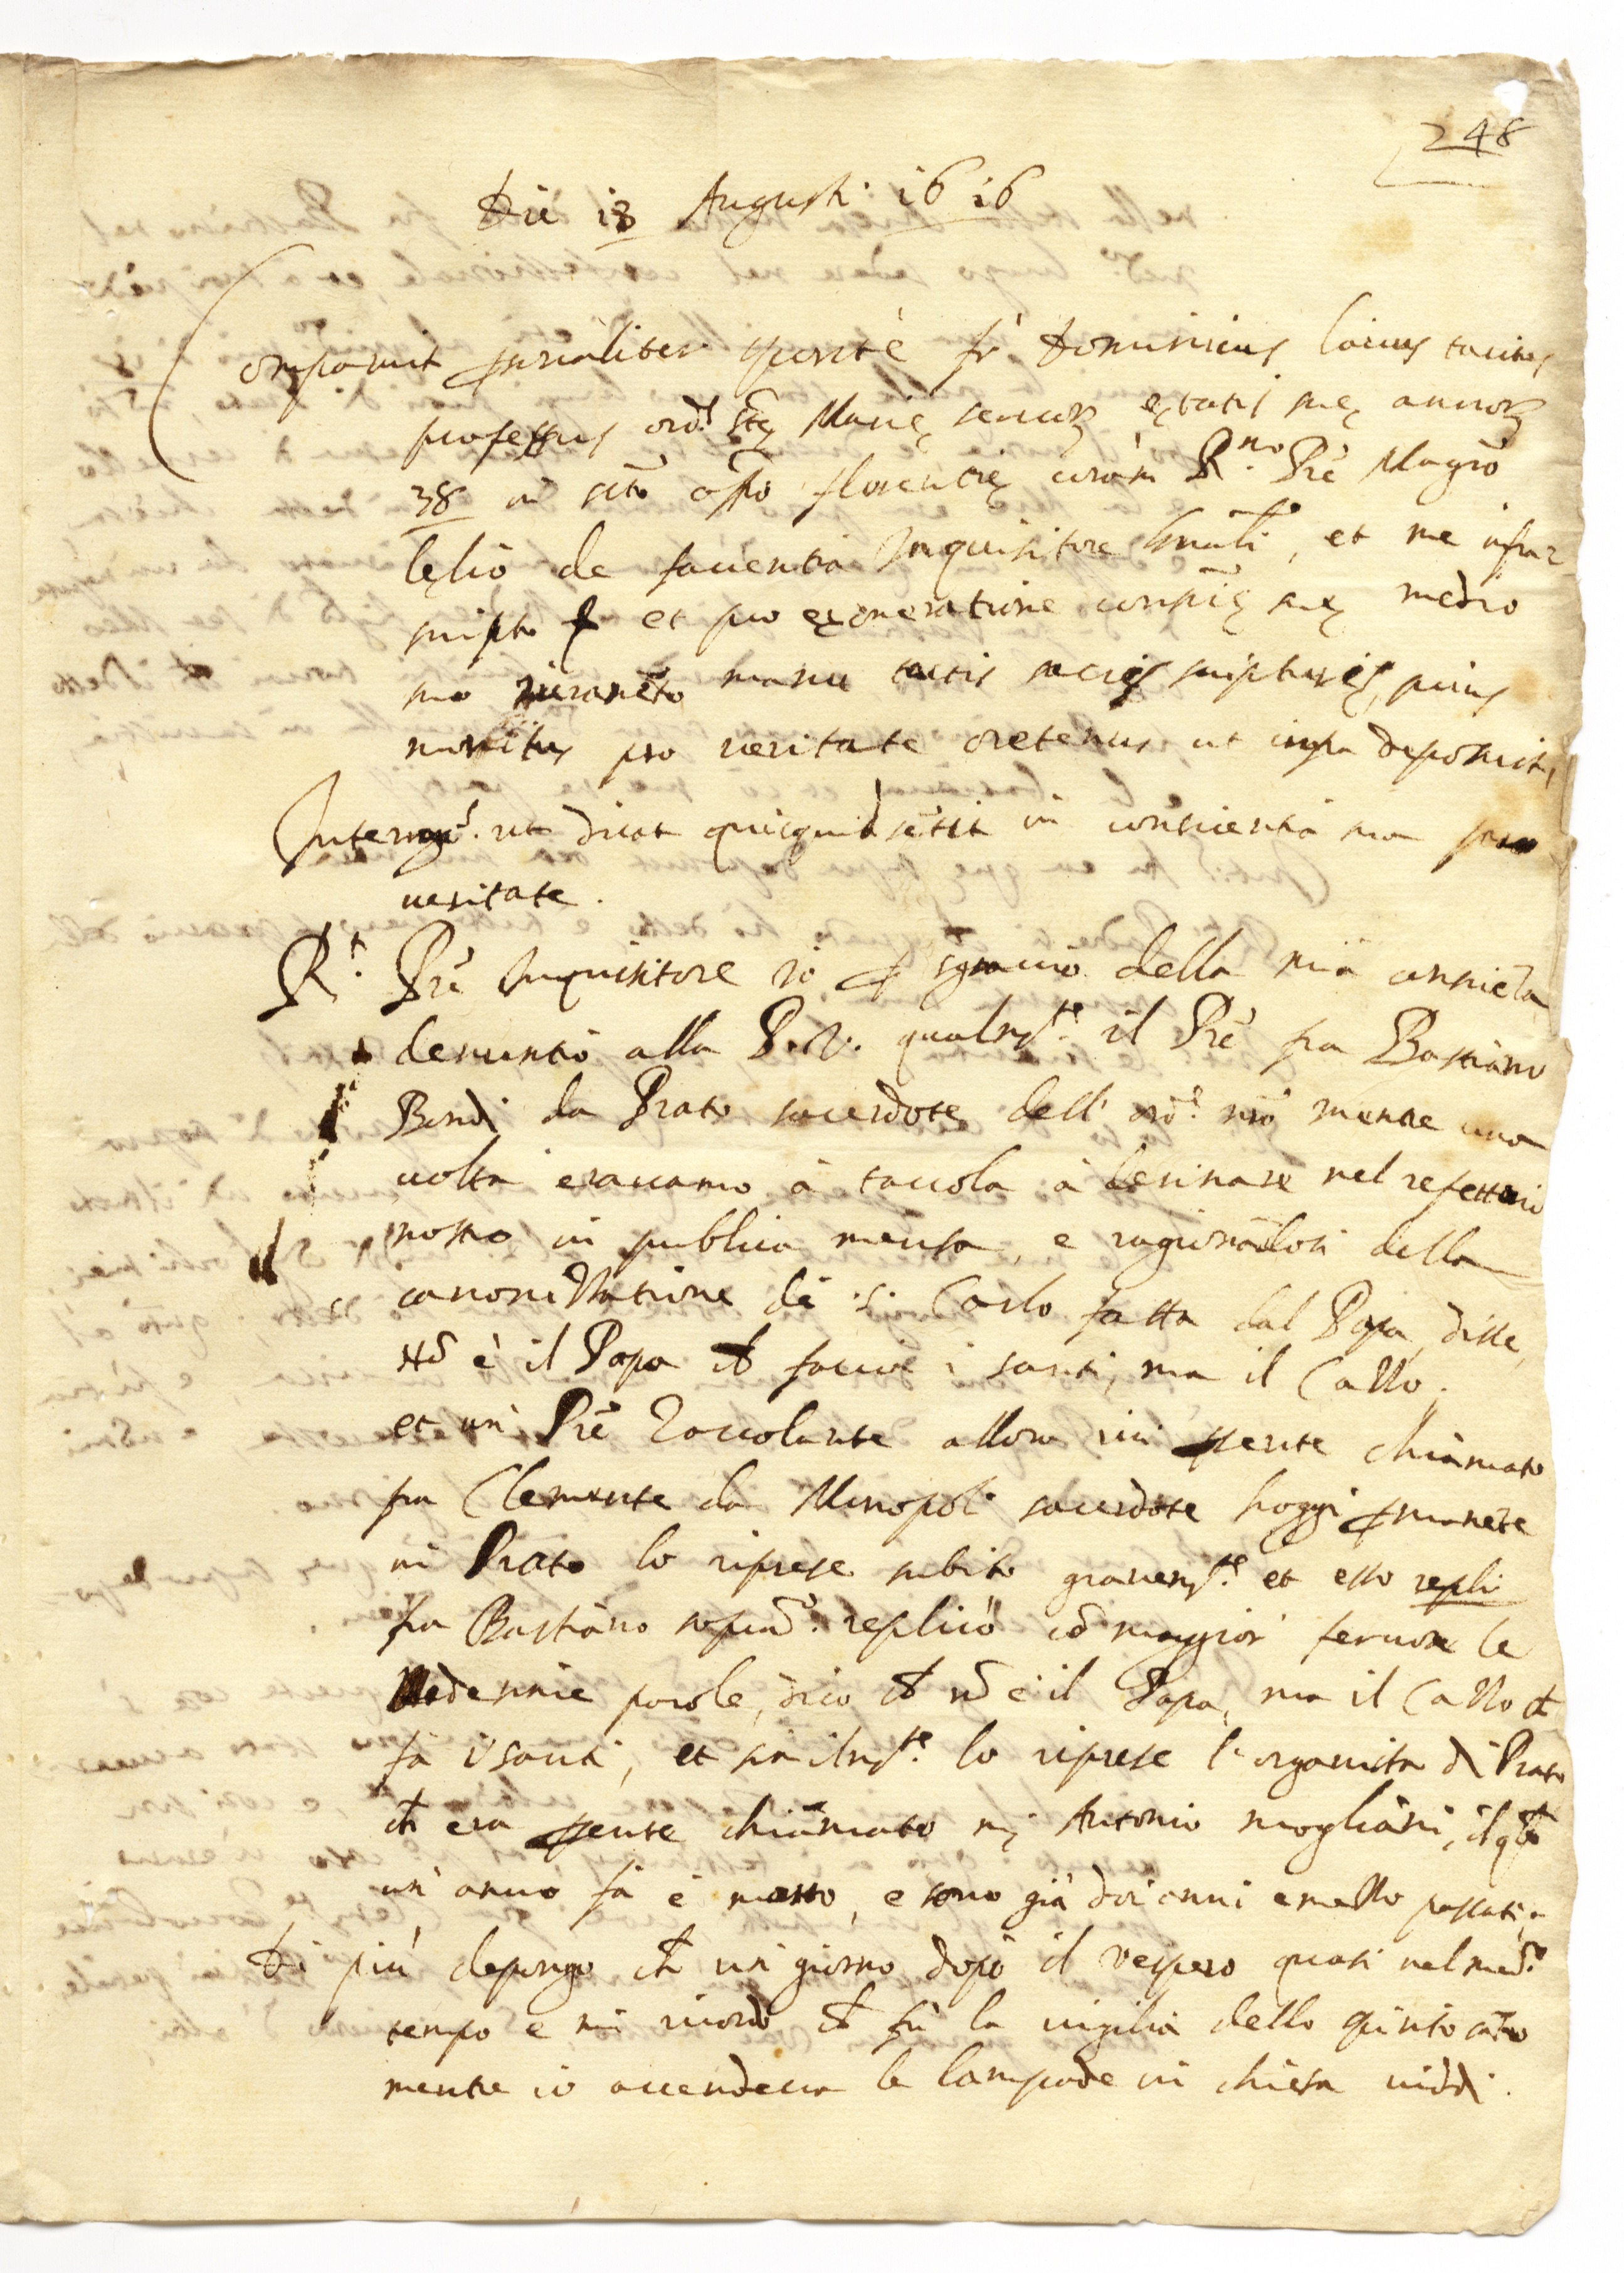 248
Die 18 Augusti 1616
Comparuit personaliter sponte fr Dominicus laicus tacitus
professus ord.s Stę Marię seruor ętatis suę annor
38 in sto offo florentię coram R.mo Pre Magro
Lęlio de fauentia Inquisitore gnali, et me infra
scripto et pro exoneratione conscię suę medio
suo iuramento manu tactis sacris scripturis, prius
monitus pro ueritate oretenus ut infra deposuit,
Interrogs. ut dicat quicquid sentit in conscientia sua pro
ueritate.
R.t Pre Inquisitore io p sgrauio della mia conscieza
denuntio alla P.V. qualmte. il Pre fra Bastiano
Bendi da Prato sacerdote dell' ord.e nro mentre una
uolta erauamo à tauola à desinare nel refettorio
nostro in publica mensa, e ragionadosi della
canonizzatione di .S. Carlo fatta dal Papa, disse,
nō è il Papa ch faccia i santi, ma il Cazzo.
et un' Pre Zoccolante allora iui pnte chiamato
fra Clemente da Monopoli sacerdote hoggi pmanete
in Prato lo riprese subito grauemte. et esso repli
fra Bastiano soprad.o replicò cō maggior feruore le
medesime parole, dico ch nō è il Papa, ma il Cazzo ch
fa i santi, et similmte. lo riprese l'organista di Prato
ch era pnte chiamato ms Antonio mogliani, il qle
un' anno fa è morto, e sono già doi anni e mezzo passati.
Di più depongo ch un giorno dopo il vespero quasi nel med.o
tempo e mi ricordo ch fù la uigilia dello spirito sāto
mentre io accendeua le lampade in chiesa uiddi